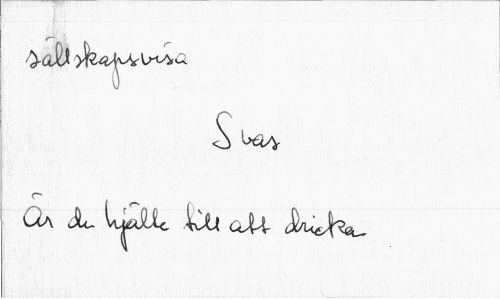 sällskapsvisa
Svas
Är du hjälte till att dricka